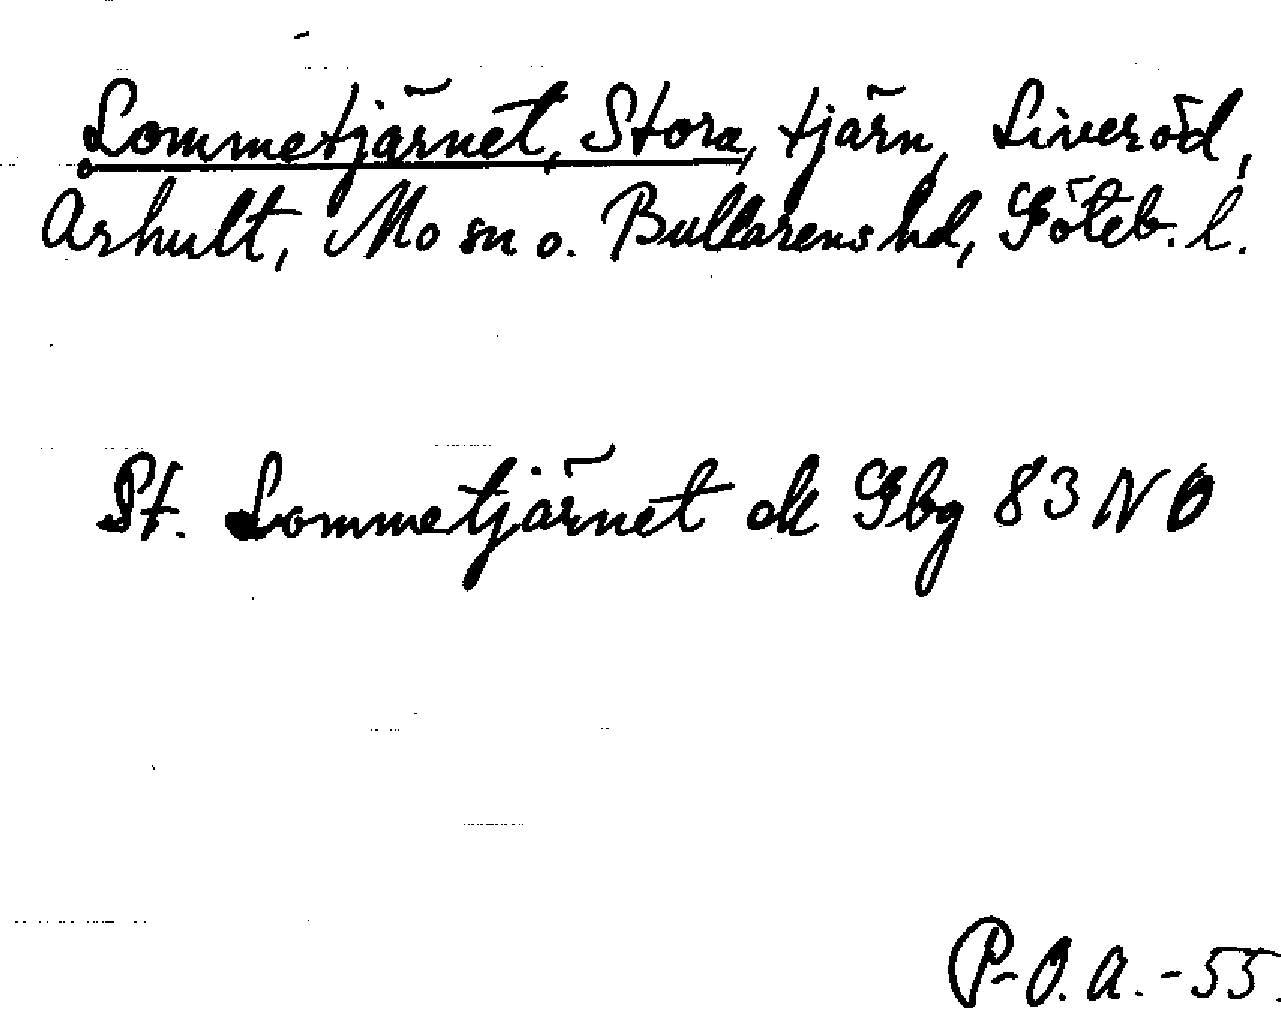 Lommetjärnet, Stora, tjärn, Liveröd,
Århult, Mo sn o. Bullarens hd, Göteb. l.
St. Lommetjärnet ek Gbg 83 NO
P-O.A.-55.